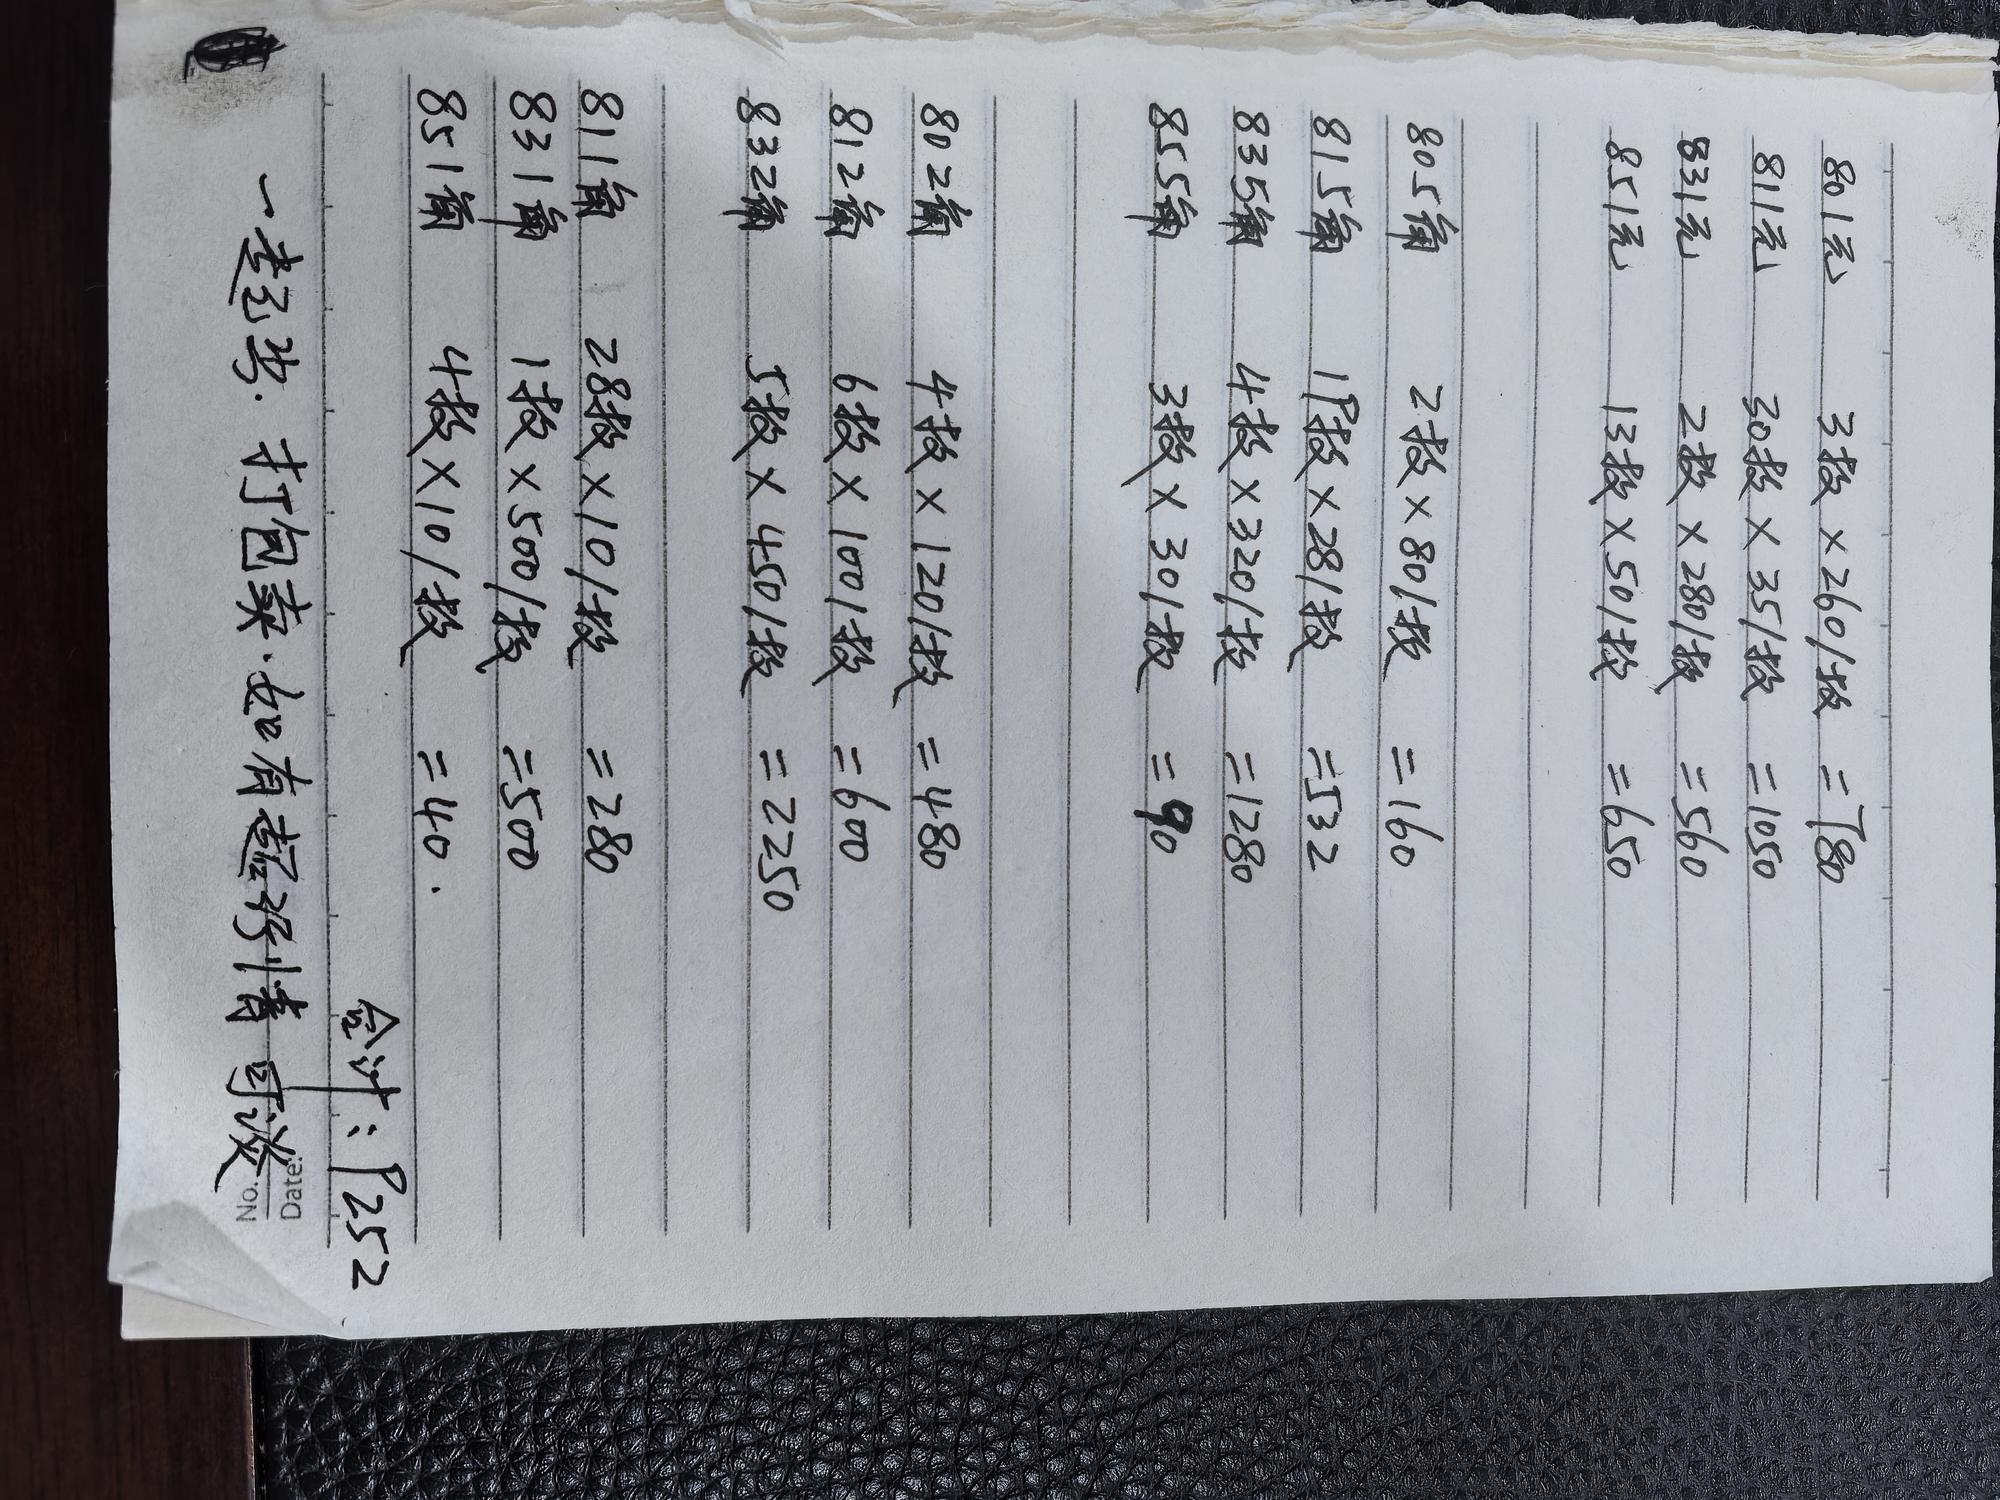 801元 3枚×260/枚 =780
811元 30枚×35/枚 =1050
831元 2枚×280/枚 =560
851元 13枚×50/枚 =650
805角 2枚×80/枚 =160
815角 19枚×28/枚 =532
835角 4枚×320/枚 =1280
855角 3枚×30/枚 =90
802角 4枚×120/枚 =480
812角 6枚×100/枚 =600
832角 5枚×450/枚 =2250
811角 28枚×10/枚 =280
831角 1枚×500/枚 =500
851角 4枚×10/枚 =40.
合计:9252
一起出.打包卖.如有起浮行情 可谈
No.
Date: